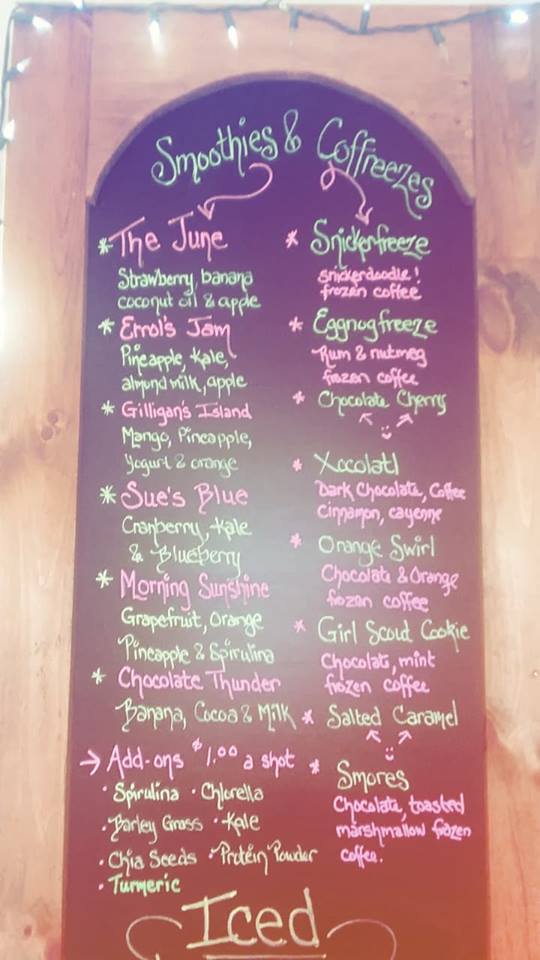 Smoothies & Coffreezes
* The June
Strawberry, banana
coconut oil & apple
* Errol's Jam
Pineapple, Kale,
almond milk, apple
* Gilligan's Island
Mango, Pineapple,
Yogurt & orange
* Sue's Blue
Cranberry, Kale
& Blueberry
* Morning Sunshine
Grapefruit, Orange
Pineapple & Spirulina
* Chocolate Thunder
Banana, Cocoa & Milk
→ Add-ons $1.00 a shot
· Spirulina · Chlorella
· Barley Grass · Kale
· Chia Seeds · Protein Powder
· Turmeric
* Snickerfreeze
snickerdoodle!
frozen coffee
* Eggnogfreeze
Rum & nutmeg
frozen coffee
* Chocolate Cherry
* Xocolatl
Dark Chocolate, Coffee
Cinnamon, cayenne
* Orange Swirl
Chocolate & Orange
frozen coffee
* Girl Scout Cookie
Chocolate, mint
frozen coffee
* Salted Caramel
* Smores
Chocolate, toasted
marshmallow frozen
coffee.
Iced